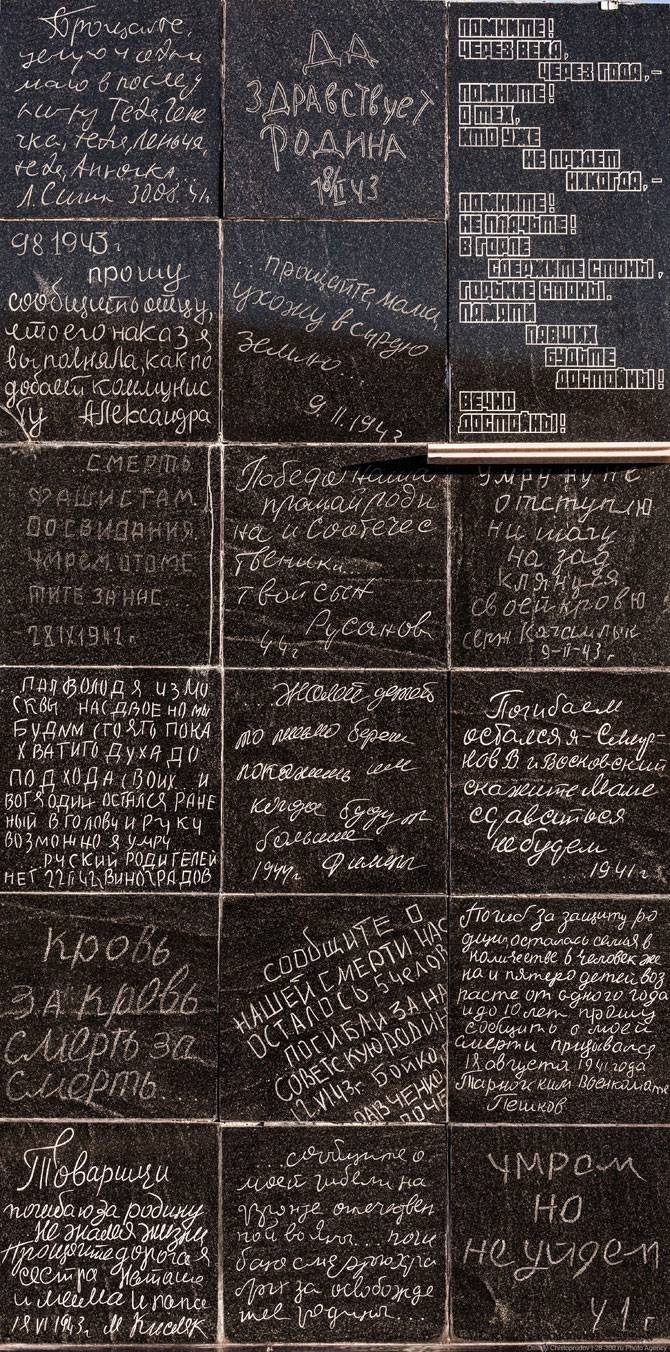 Прощайте,
целую
мало в послед
Тебя, Гене
чка, тебя, Леньча,
тебя, Анночка...
30.08.41г
ДА
ЗДРАВСТВУЕТ
РОДИНА
18/II 43
ПОМНИТЕ!
ЧЕРЕЗ ВЕКА,
ЧЕРЕЗ ГОДА,-
ПОМНИТЕ!
О ТЕХ,
КТО УЖЕ
НЕ ПРИДЕТ
НИКОГДА,-
ПОМНИТЕ!
НЕ ПЛАЧЬТЕ!
В ГОРЛЕ
СДЕРЖИТЕ СТОНЫ,
ГОРЬКИЕ СТОНЫ.
ПАМЯТИ
ПАВШИХ
БУДЬТЕ
ДОСТОЙНЫ!
ВЕЧНО
ДОСТОЙНЫ!
98 1943 г.
прошу
сообщить отцу,
что его наказ я
выполняла, как по
добает коммунис
ту Александра
...прощайте, мама,
ухожу в сырую
землю...
9 II. 1943
...СМЕРТЬ
ФАШИСТАМ.
ДОСВИДАНИЯ.
УМРЕМ ОТОМС
ТИТЕ ЗА НАС...
1942 г.
Победа наша
прощай роди
на и соотечес
твеники...
твой сын
Русанов
44 г
Умру но не
отступлю
ни шагу
на зад
клянуся
своей кровю
серж
9-II-43 г.
ПАЛ ВОЛОДЯ ИЗ МО
СКВЫ НАС ДВОЕ НО МЫ
БУДИМ СТОЯТЬ ПОКА
ХВАТИТ ДУХА ДО
ПОДХОДА СВОИХ И
ВОТ Я ОДИН ОСТАЛСЯ РАНЕ
НЫЙ В ГОЛОВУ И РУКУ
ВОЗМОЖНО Я УМРУ
...РУСКИЙ РОДИТЕЛЕЙ
НЕТ 22 II 42 ВИНОГРАДОВ
...Жалей детей
то письмо береги
покажешь им
когда будут
большие
1944 г.
Погибаем
остался я - Смир-
нов В и Восковский
скажите Маме
сдаваться
не будем
...1941 г
кровь
за кровь
смерть за
смерть...
СООБЩИТЕ О
НАШЕЙ СМЕРТИ НАС
ОСТАЛОСЬ 5 ЧЕЛОВ
ПОГИБЛИ ЗА НА
СОВЕТСКУЮ РОДИН
12.VI 43г. БОЙКО
РАВЧЕНКО
Погиб за защиту ро
дины, осталась семья в
количестве 6 человек же
на и пятеро детей воз
расте от одного года
и до 10 лет прошу
сообщить о моей
смерти призывался
18 августа 1941 года
Тарногским Военкомате
Пешков
Товарищи
погибаю за родину
не жалея жизни
Прощайте дорогая
сестра Наташа
и мама и папа
18 VI 1943г. М Кисляк
...сообщите о
моей гибели на
фронте отечествен
ной войны... поги
баю смертью хра
брых за освобожде
ние родины...
УМРОМ
НО
НЕ УЙДЕМ
41 г
Dmitry Chistoprudov | 28-300.ru Photo Agency